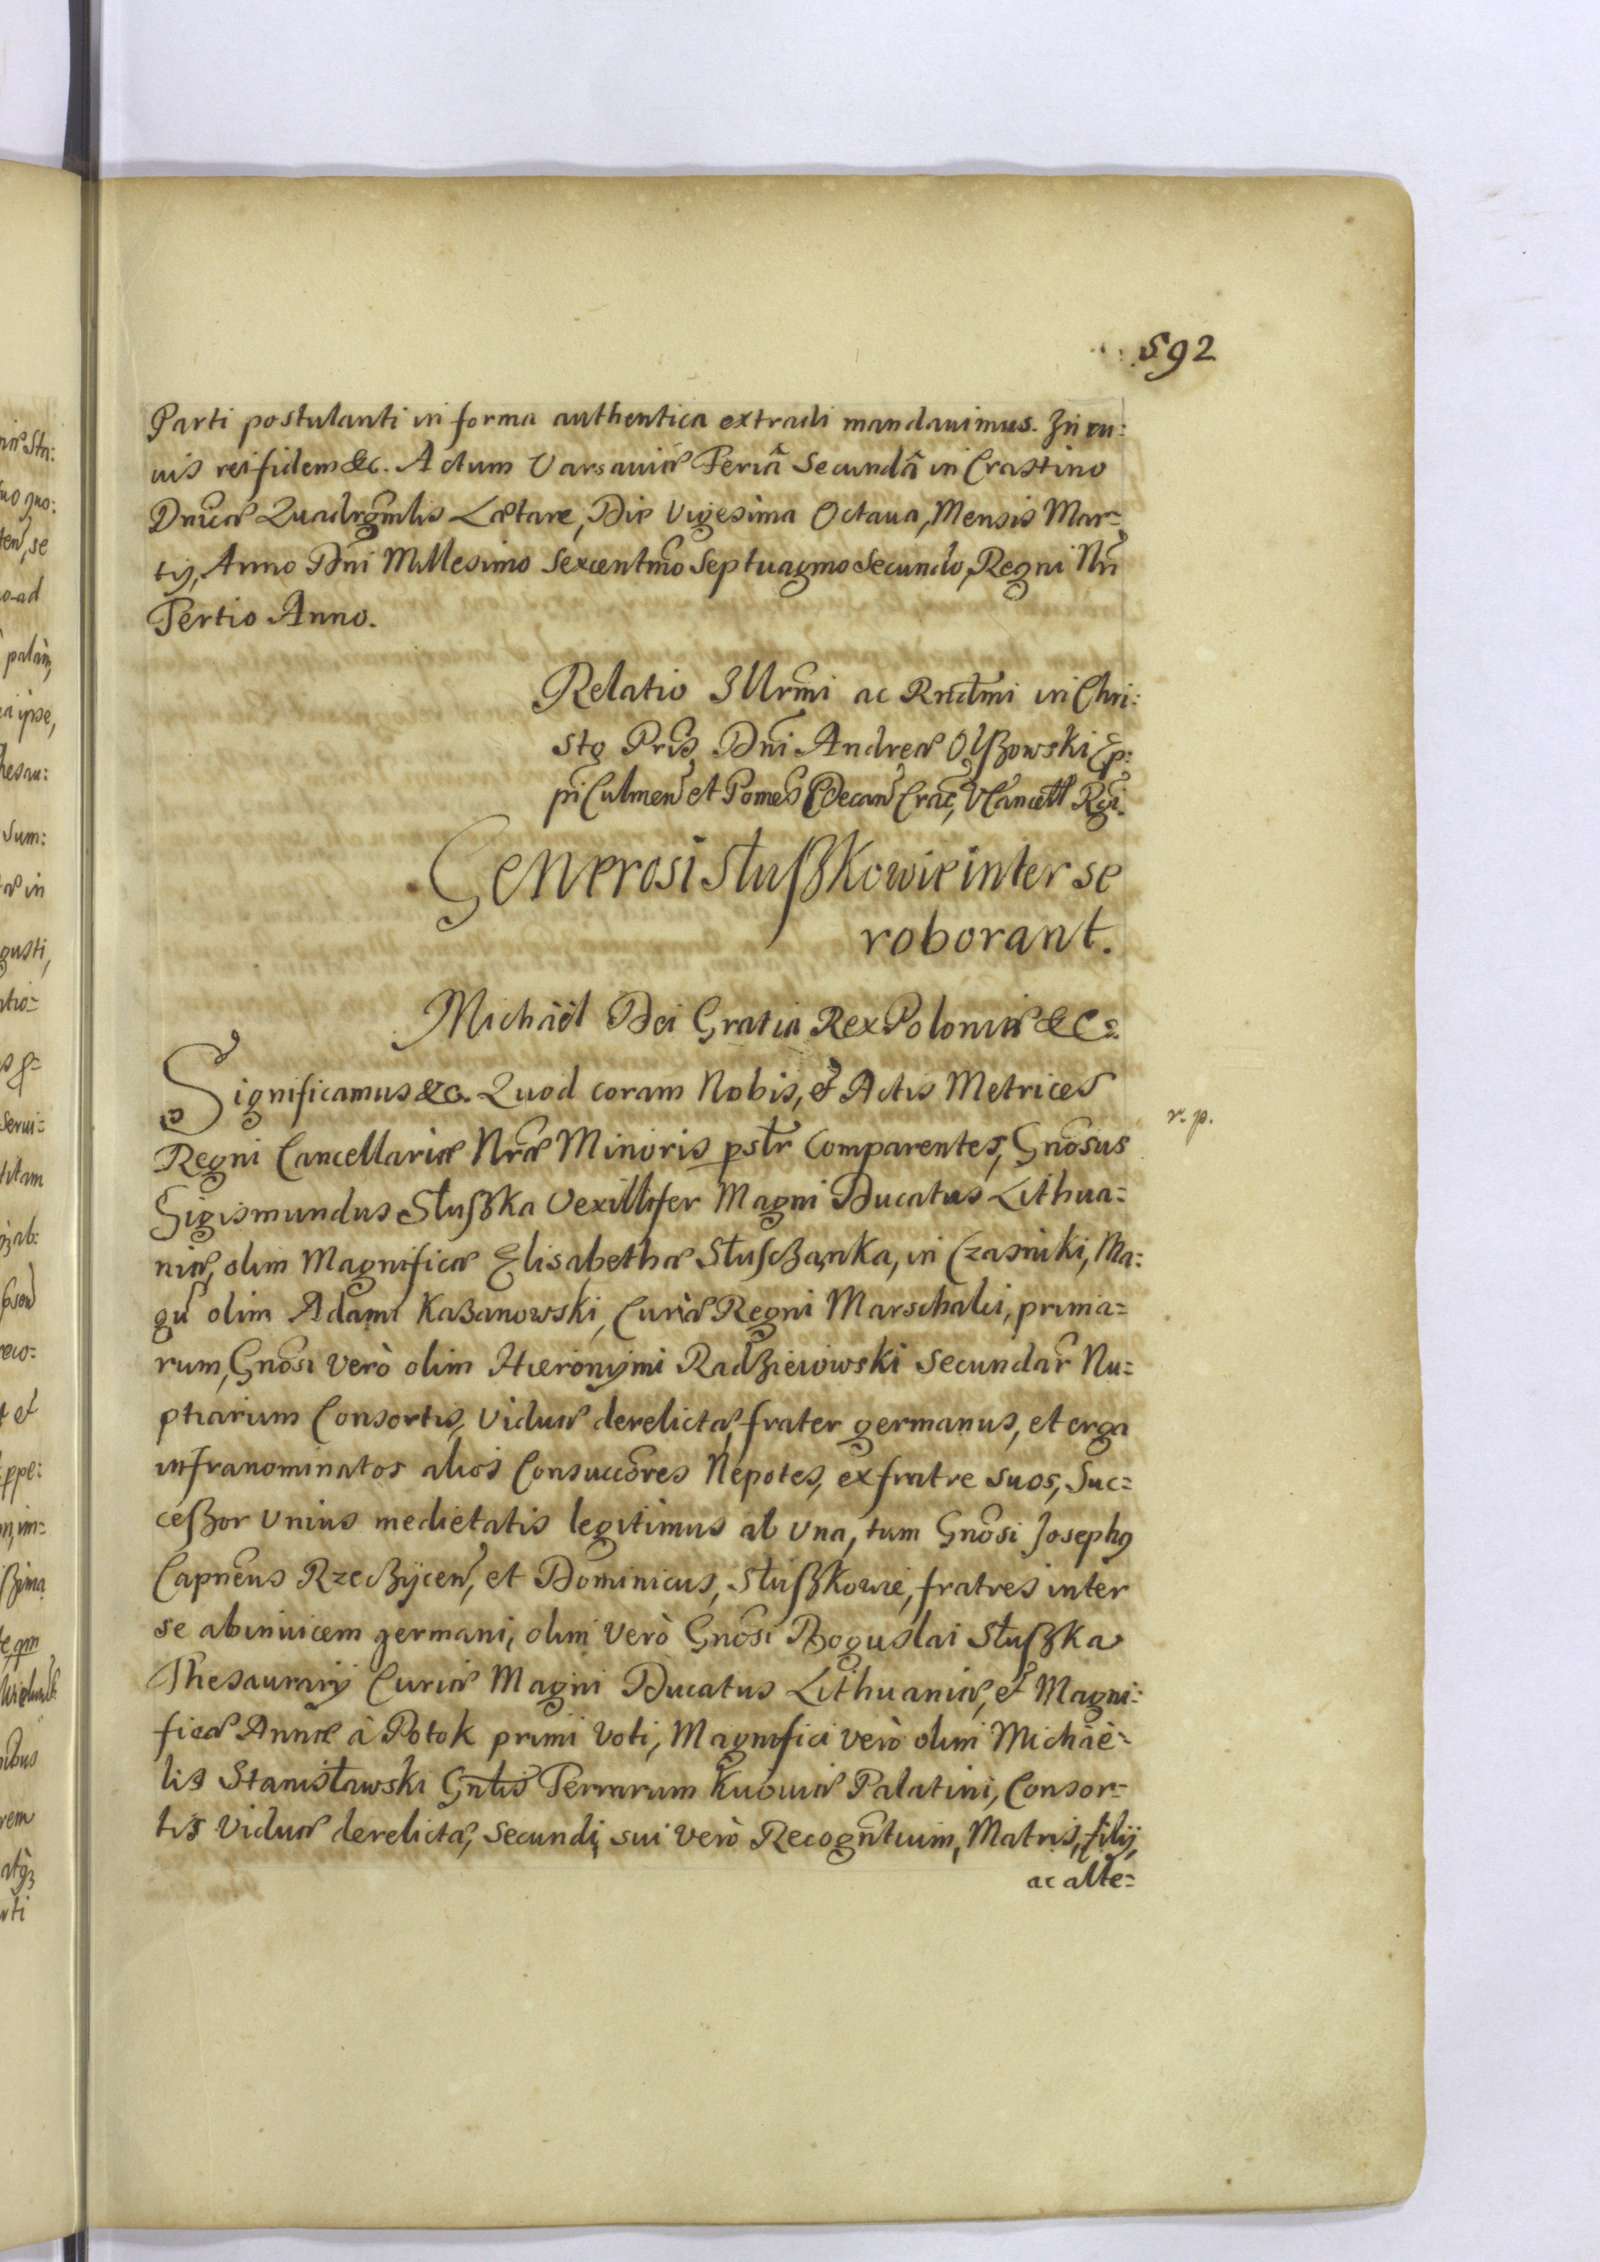 592
Parti postulanti in forma authentica extradi mandauimus. In cu:
uis rei fidem &c. Actum Varsauiæ Feriâ Secundâ in Crastino
Dnicæ Quadrgmlis Lætare, Die Vigesima Octaua, Mensis Mar-
tij, Anno Dni Millesimo Sexcentmo Septuagmo Secundo, Regni Nri
Tertio Anno.
Relatio Illrmi ac Rndmi in Chri:
sto Pris Dni Andreæ Olßowski Ep:
pi Culmen et Pomes Decan Crac, VCancell Rgi.
Generosi Słußkowie inter se
roborant.
Michäel Dei Gratia Rex Poloniæ &c:
Significamus &c. Quod coram Nobis, et Actis Metrices
r. p.
Regni Cancellariæ Nræ Minoris pstr Comparentes, Gnosus
Sigismundus Słußka Vexillifer Magni Ducatus Lithua=
niæ, olim Magnificæ Elisabethæ Słuscżanka, in Czasniki, Ma:
gci olim Adami Kaßanowski, Curiæ Regni Marschalci, prima=
rum, Gnosi verò olim Hieronymi Radzieiowski Secundar Nu=
ptiarum Consortis, Viduæ derelictæ, frater germanus, et erga
infranominatos alios Consuccores Nepotes, ex fratre suos, Suc=
ceßor Unius medietatis legitimus ab Una, tum Gnosi Josephus
Capneus Rzeczycen, et Dominicus, Słußkowie, fratres inter
se abinuicem germani, olim Verò Gnosi Boguslai Słußka
Thesaurarij Curiæ Magni Ducatus Lithuaniæ, et Magni:
ficæ Annæ à Potok primi Voti, Magnifici verò olim Michäe-
lis Stanisławski Gnlis Terrarum Kiiouiæ Palatini, Consor-
tis Viduæ derelictæ, Secundi, sui verò Recogntium, Matris, filij,
ac alte=